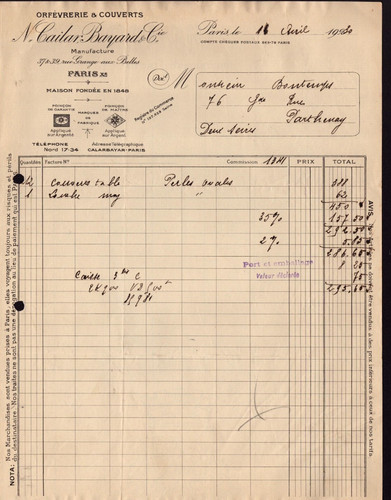 ORFÈVRERIE & COUVERTS
N. Cailar, Bayard & Cie
Manufacture
37 & 39, rue Grange-aux-Belles
PARIS Xe
MAISON FONDÉE EN 1848
POINÇON DE GARANTIE
MARQUES DE FABRIQUE
POINÇON DE MAÎTRE
Applique sur Argent
Applique sur Argent
Registre du Commerce
TÉLÉPHONE
Nord 17-34
Adresse Télégraphique
CALARBAYAR-PARIS
Paris, le 18 Avril 1930
COMPTE CHÈQUES POSTAUX PARIS
Doit
Monsieur Bontemps
76 Gde Rue
Parthenay
Deux Sèvres
Quantités
Facture No
Commission 1381
PRIX
TOTAL
12 couverts table Perles ovales 388
1 Louche moy " 62
450
35% 157 50
292 50
2% 5.85
286.65
Port et emballage
Valeur déclarée
295.60
Caisse
NOTA: Nos Marchandises, sont vendues prises à Paris; elles voyagent toujours aux risques et périls
du destinataire. Nos traites ne sont pas une dérogation au lieu de paiement qui est Paris
AVIS.
être vendus à des prix inférieurs à ceux de nos tarifs.